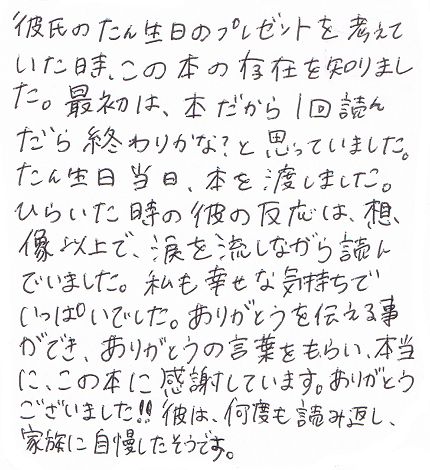 彼氏のたん生日のプレゼントを考えて
いた時、この本の存在を知りまし
た。最初は、本だから1回読ん
だら終わりかな?と思っていました。
たん生日当日、本を渡しました。
ひらいた時の彼の反応は、想、
像以上で、涙を流しながら読ん
でいました。私も幸せな気持ちで
いっぱいでした。ありがとうを伝える事
ができ、ありがとうの言葉をもらい、本当
に、この本に感謝しています。ありがとう
ございました!!彼は、何度も読み返し、
家族に自慢したそうです。